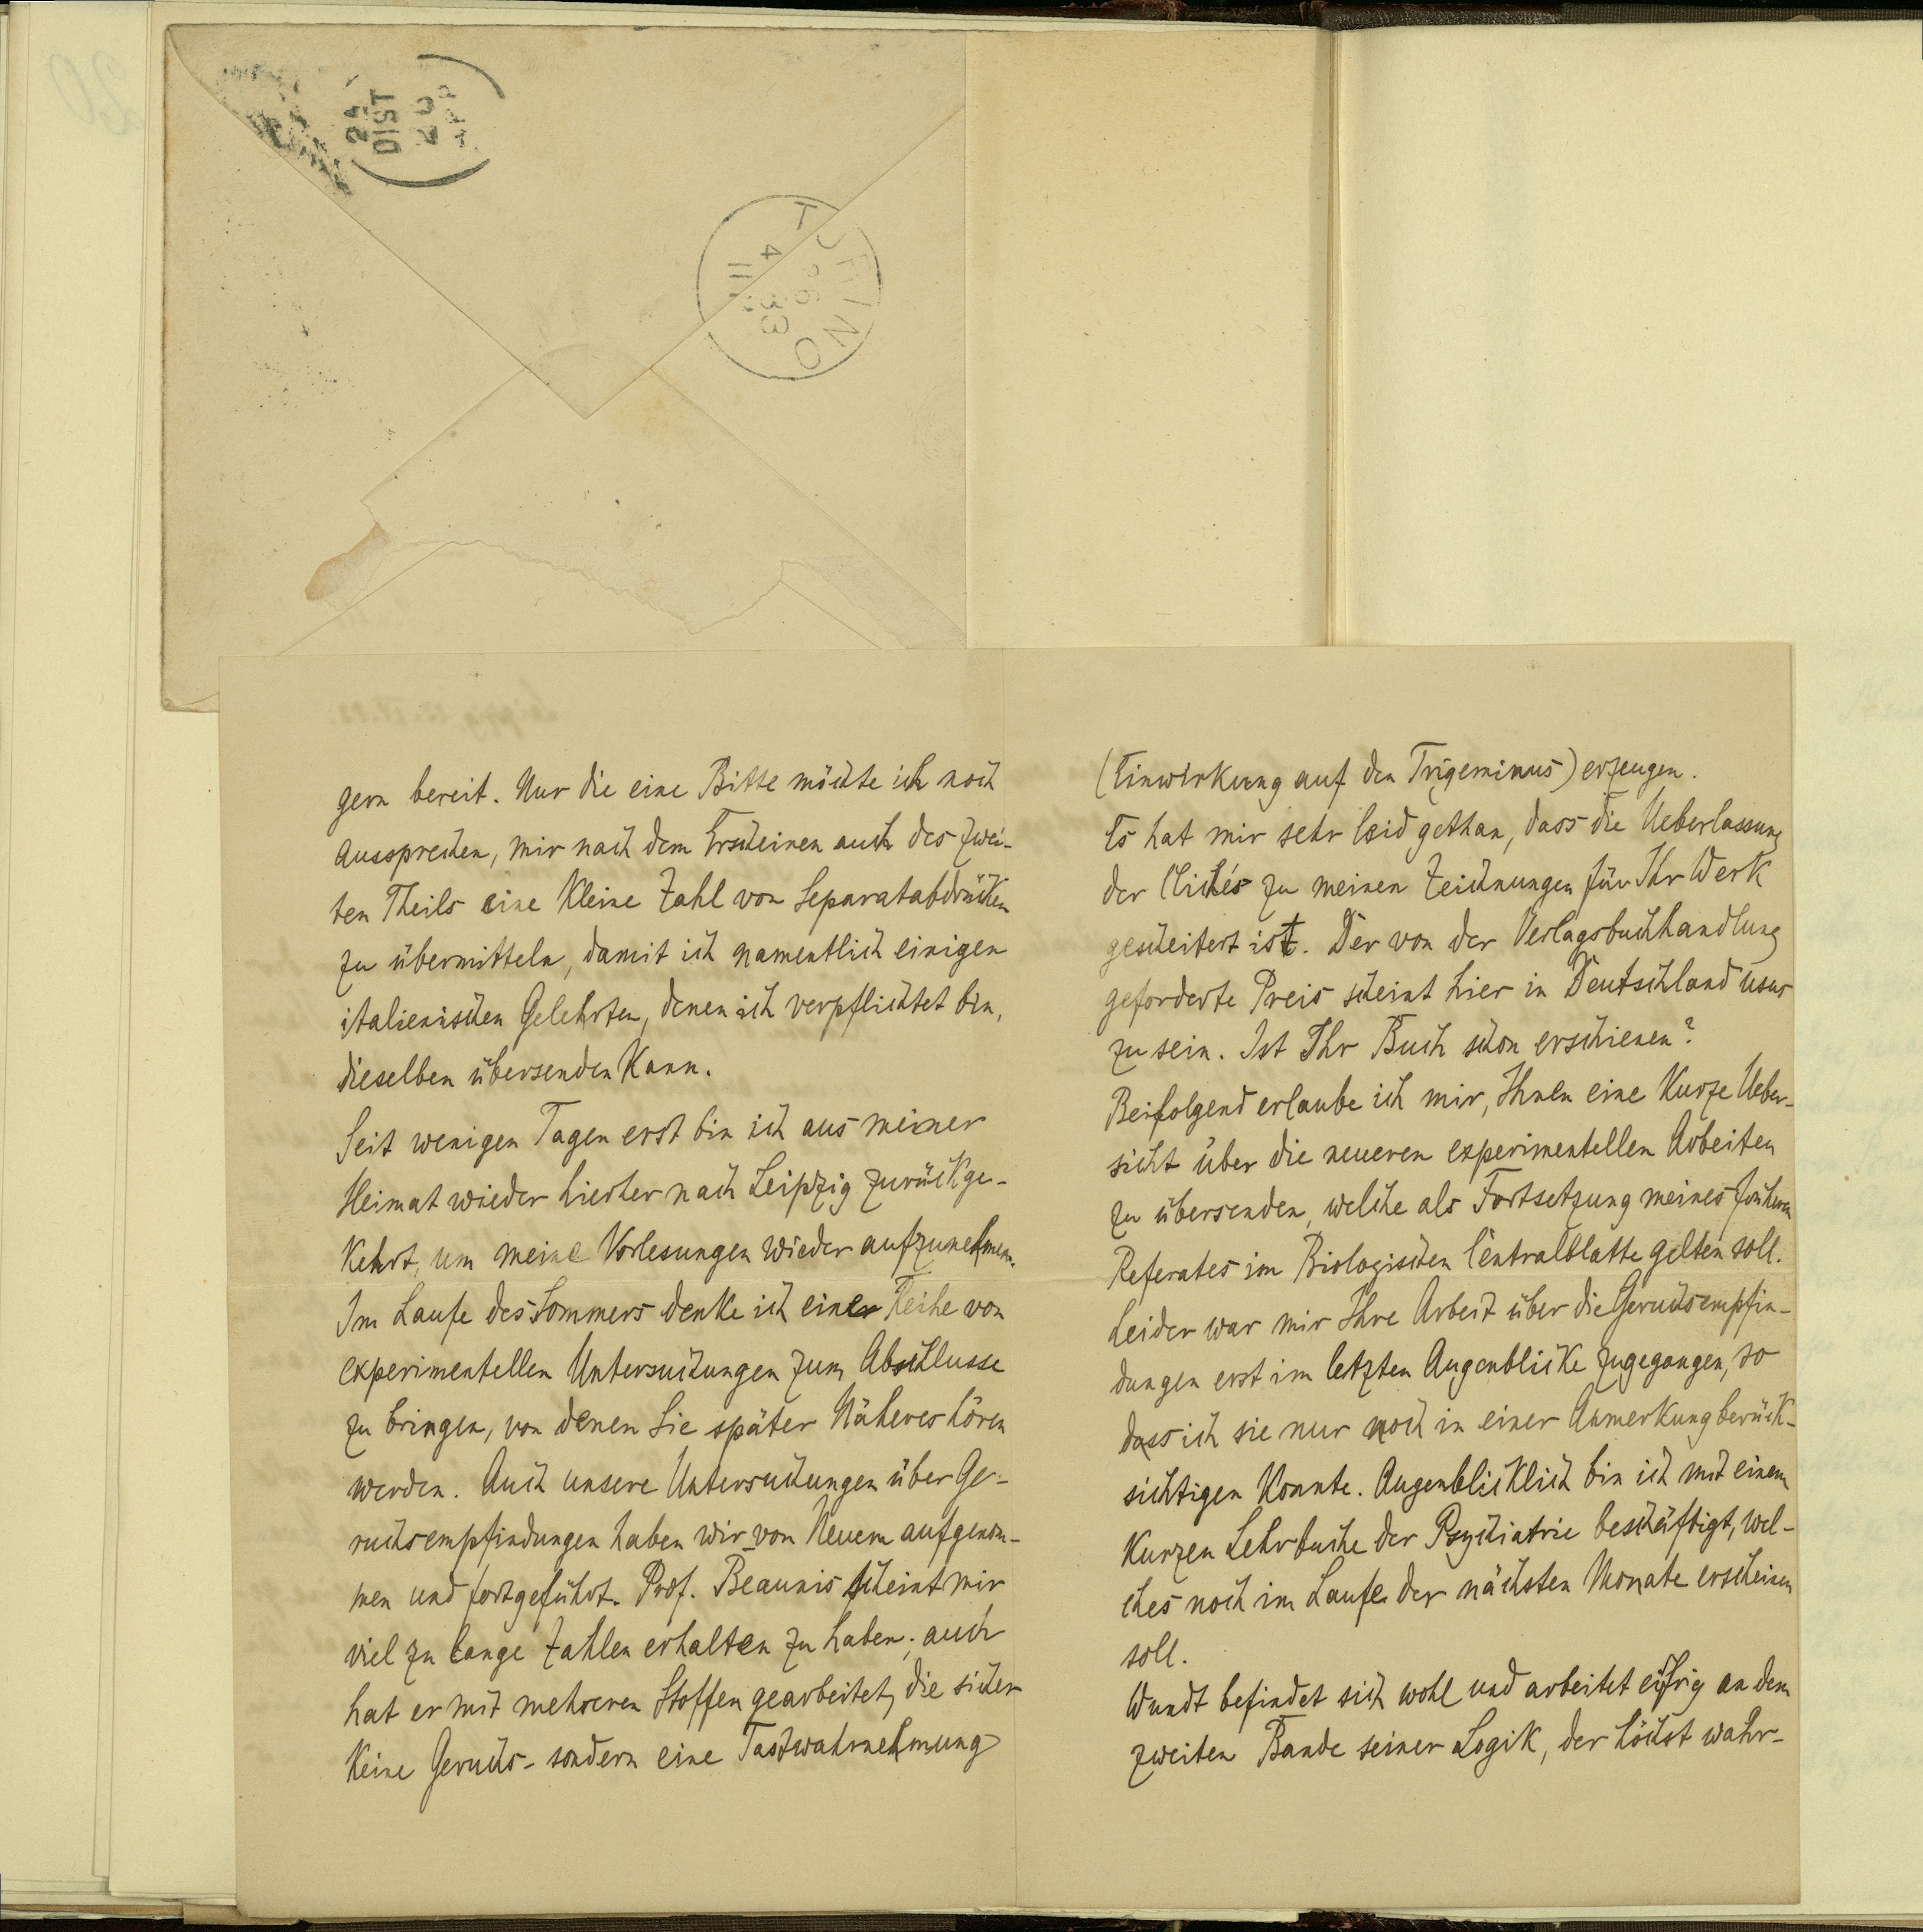 20
24
DIST
TORINO
4
83
gern bereit. Nur die eine Bitte möchte ich noch
aussprechen, mir nach dem Erscheinen auch des zwei-
ten Theils eine kleine Zahl von Separatabdrücken
zu übermitteln, damit ich namentlich einigen
italienischen Gelehrten, denen ich verpflichtet bin,
dieselben übersenden kann.
Seit wenigen Tagen erst bin ich aus meiner
Heimat wieder hierher nach Leipzig zurückge-
kehrt, um meine Vorlesungen wieder aufzunehmen.
Im Laufe des Sommers denke ich eine Reihe von
experimentellen Untersuchungen zum Abschlusse
zu bringen, von denen Sie später Näheres hören
werden. Auch unsere Untersuchungen über Ge-
ruchsempfindungen haben wir von Neuem aufgenom-
men und fortgeführt. Prof. Beaunis scheint mir
viel zu lange Zahlen erhalten zu haben; auch
hat er mit mehreren Stoffen gearbeitet, die sicher
keine Geruchs- sondern eine Tastwahrnehmung
(Einwirkung auf den Trigeminus) erzeugen.
Es hat mir sehr leid gethan, dass die Ueberlassung
der Clichés zu meinen Zeichnungen für Ihr Werk
gescheitert ist. Der von der Verlagsbuchhandlung
geforderte Preis scheint hier in Deutschland usus
zu sein. Ist Ihr Buch schon erschienen?
Beifolgend erlaube ich mir, Ihnen eine kurze Ueber-
sicht über die neueren experimentellen Arbeiten
zu übersenden, welche als Fortsetzung meines früheren
Referates im Biologischen Centralblatte gelten soll.
Leider war mir Ihre Arbeit über die Geruchsempfin-
dungen erst im letzten Augenblicke zugegangen, so
dass ich sie nur noch in einer Anmerkung berück-
sichtigen konnte. Augenblicklich bin ich mit einem
kurzen Lehrbuche der Psychiatrie beschäftigt, wel-
ches noch im Laufe der nächsten Monate erscheinen
soll.
Wundt befindet sich wohl und arbeitet eifrig an dem
zweiten Bande seiner Logik, der höchst wahr-